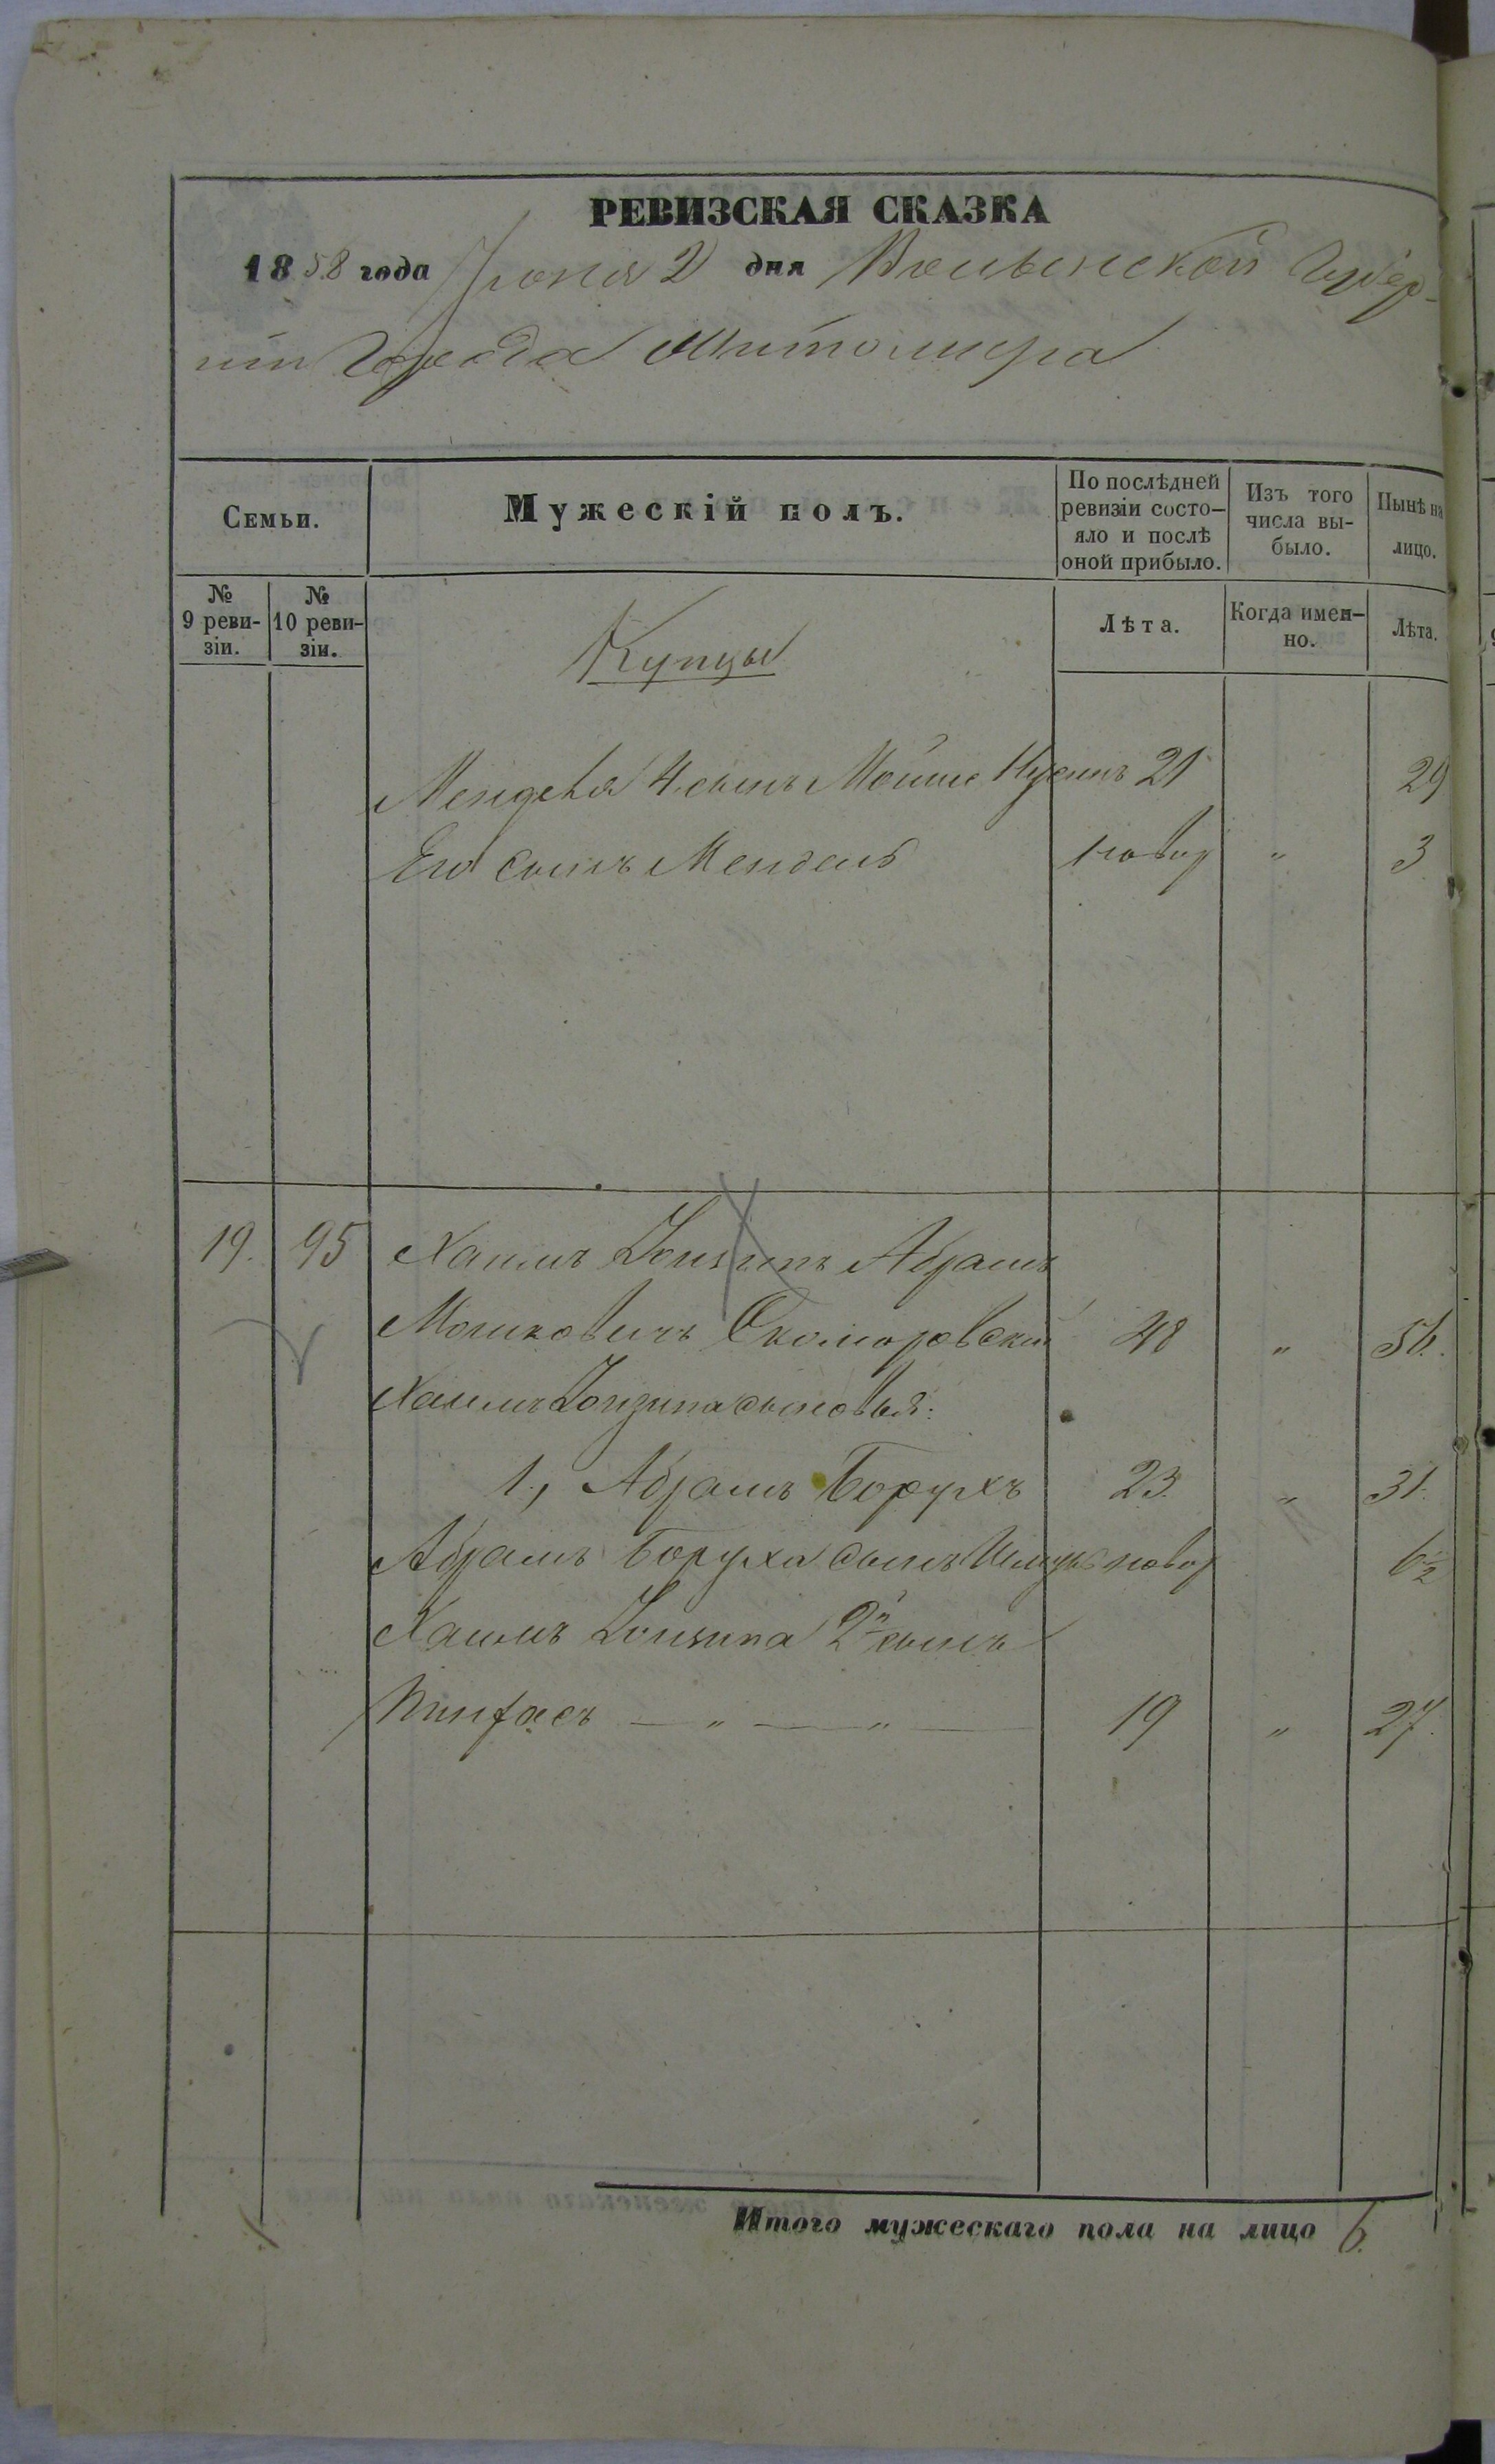 РЕВИЗСКАЯ СКАЗКА
1858 года Іюня 2 дня Волынской Губер-
ніи Города Житомира
Семьи.
Мужескій полъ.
По послѣдней ревизіи состо-яло и послѣ оной прибыло.
Изъ того числа вы-было.
Нынѣ на лицо.
№ 9 реви-зіи.
№ 10 реви-зіи.
Лѣта.
Когда имен-но.
Лѣта.
Купцы
Менделя 4. сынъ Мойше 21 29
Его сынъ Мендель новор " 3
19. 95 Хаимъ Абрамъ
Мошковичъ Скоморовскій 48 " 56.
Хаимъ сыновья:
1., Абрамъ Борухъ 23. " 31.
Абрамъ Боруха сынъ новор 6½
Хаимъ 2й сынъ
Пинхасъ — " — " — 19 " 27.
Итого мужескаго пола на лицо 6.